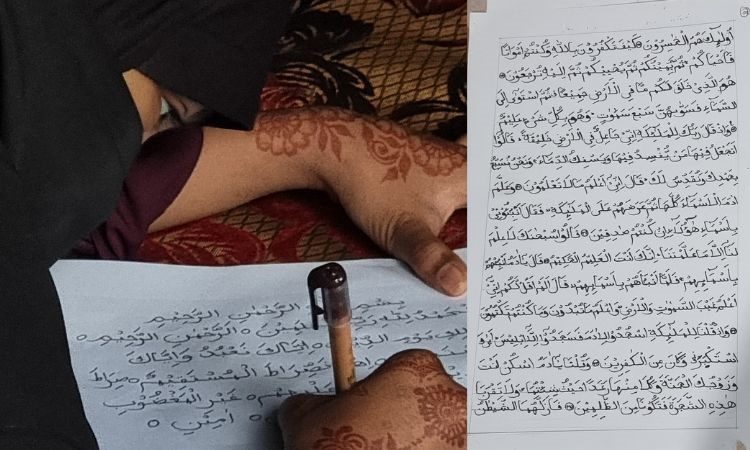 بِسْمِ الرَّحْمٰنِ الرَّحِيْمِ
الرَّحْمٰنِ الرَّحِيْمِ ○
يَوْمِ اِيَّاكَ نَعْبُدُ وَاِيَّاكَ
الْمُسْتَقِيْمَ ○ صِرَاطَ
غَيْرِ الْمَغْضُوْبِ
اٰمِيْن ○
اُولٰٓئِكَ هُمُ الْخٰسِرُوْنَ كَيْفَ تَكْفُرُوْنَ بِاللّٰهِ وَكُنْتُمْ اَمْوَاتًا
فَاَحْيَاكُمْ ثُمَّ يُمِيْتُكُمْ ثُمَّ يُحْيِيْكُمْ ثُمَّ اِلَيْهِ تُرْجَعُوْنَ
هُوَ الَّذِيْ خَلَقَ لَكُمْ مَّا فِى الْاَرْضِ جَمِيْعًا ثُمَّ اسْتَوٰٓى اِلَى
السَّمَآءِ فَسَوّٰىهُنَّ سَبْعَ سَمٰوٰتٍ وَهُوَ بِكُلِّ شَيْءٍ عَلِيْمٌ
وَاِذْ قَالَ رَبُّكَ لِلْمَلٰٓئِكَةِ اِنِّيْ جَاعِلٌ فِى الْاَرْضِ خَلِيْفَةً قَالُوْٓا
اَتَجْعَلُ فِيْهَا مَنْ يُّفْسِدُ فِيْهَا وَيَسْفِكُ الدِّمَآءَ وَنَحْنُ نُسَبِّحُ
بِحَمْدِكَ وَنُقَدِّسُ لَكَ قَالَ اِنِّيْٓ اَعْلَمُ مَا لَا تَعْلَمُوْنَ وَعَلَّمَ
اٰدَمَ الْاَسْمَآءَ كُلَّهَا ثُمَّ عَرَضَهُمْ عَلَى الْمَلٰٓئِكَةِ فَقَالَ اَنْۢبِـُٔوْنِيْ
بِاَسْمَآءِ هٰٓؤُلَآءِ اِنْ كُنْتُمْ صٰدِقِيْنَ قَالُوْا سُبْحٰنَكَ لَا عِلْمَ
لَنَآ اِلَّا مَا عَلَّمْتَنَا اِنَّكَ اَنْتَ الْعَلِيْمُ الْحَكِيْمُ قَالَ يٰٓاٰدَمُ اَنْۢبِئْهُمْ
بِاَسْمَآئِهِمْ فَلَمَّآ اَنْۢبَاَهُمْ بِاَسْمَآئِهِمْ قَالَ اَلَمْ اَقُلْ لَّكُمْ اِنِّيْٓ
اَعْلَمُ غَيْبَ السَّمٰوٰتِ وَالْاَرْضِ وَاَعْلَمُ مَا تُبْدُوْنَ وَمَا كُنْتُمْ تَكْتُمُوْنَ
وَاِذْ قُلْنَا لِلْمَلٰٓئِكَةِ اسْجُدُوْا لِاٰدَمَ فَسَجَدُوْٓا اِلَّآ اِبْلِيْسَ اَبٰى وَ
اسْتَكْبَرَ وَكَانَ مِنَ الْكٰفِرِيْنَ وَقُلْنَا يٰٓاٰدَمُ اسْكُنْ اَنْتَ
وَزَوْجُكَ الْجَنَّةَ وَكُلَا مِنْهَا رَغَدًا حَيْثُ شِئْتُمَا وَلَا تَقْرَبَا
هٰذِهِ الشَّجَرَةَ فَتَكُوْنَا مِنَ الظّٰلِمِيْنَ فَاَزَلَّهُمَا الشَّيْطٰنُ